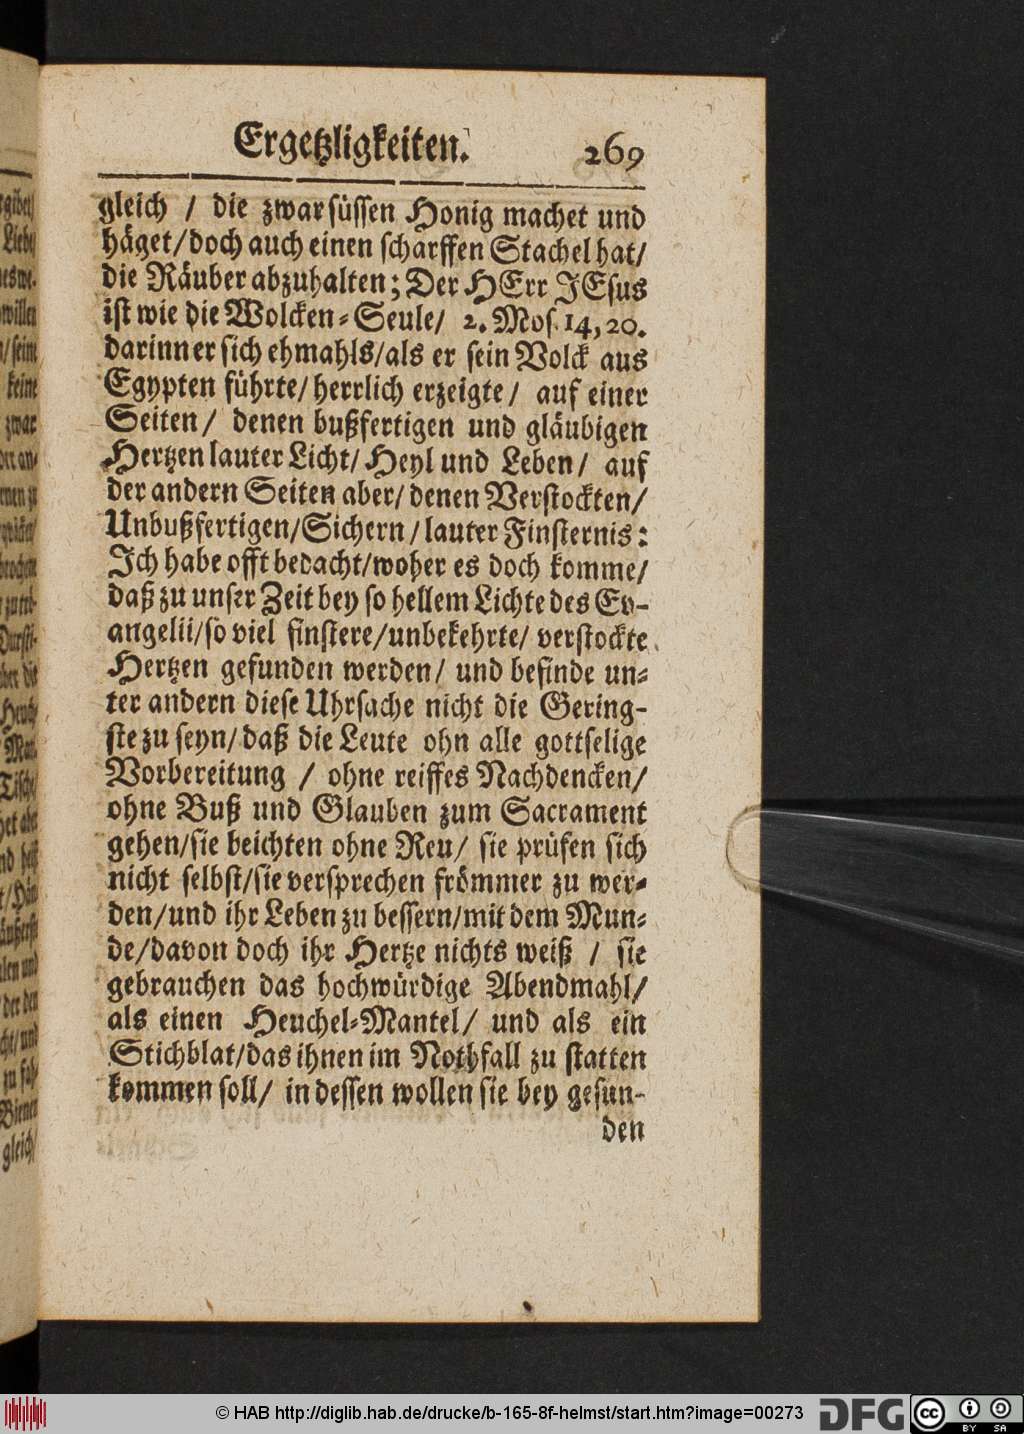 Ergetzligkeiten. 269
gleich / die zwar süssen Honig machet und
häget/doch auch einen scharffen Stachel hat/
die Räuber abzuhalten; Der HErr JEsus
ist wie die Wolcken-Seule/ 2. Mos. 14, 20.
darinn er sich ehmahls/als er sein Volck aus
Egypten führte/herrlich erzeigte/ auf einer
Seiten/ denen bußfertigen und gläubigen
Hertzen lauter Licht/Heyl und Leben/ auf
der andern Seiten aber/denen Verstockten/
Unbußfertigen/Sichern/lauter Finsternis:
Ich habe offt bedacht/woher es doch komme/
daß zu unser Zeit bey so hellem Lichte des Ev-
angelii/so viel finstere/unbekehrte/verstockte
Hertzen gefunden werden/ und befinde un-
ter andern diese Uhrsache nicht die Gering-
ste zu seyn/daß die Leute ohn alle gottselige
Vorbereitung / ohne reiffes Nachdencken/
ohne Buß und Glauben zum Sacrament
gehen/sie beichten ohne Reu/ sie prüfen sich
nicht selbst/sie versprechen frömmer zu wer-
den/und ihr Leben zu bessern/mit dem Mun-
de/davon doch ihr Hertze nichts weiß / sie
gebrauchen das hochwürdige Abendmahl/
als einen Heuchel-Mantel/ und als ein
Stichblat/das ihnen im Nothfall zu statten
kommen soll/ in dessen wollen sie bey gesun-
den
© HAB http://diglib.hab.de/drucke/b-165-8f-helmst/start.htm?image=00273
DFG
cc
BY SA